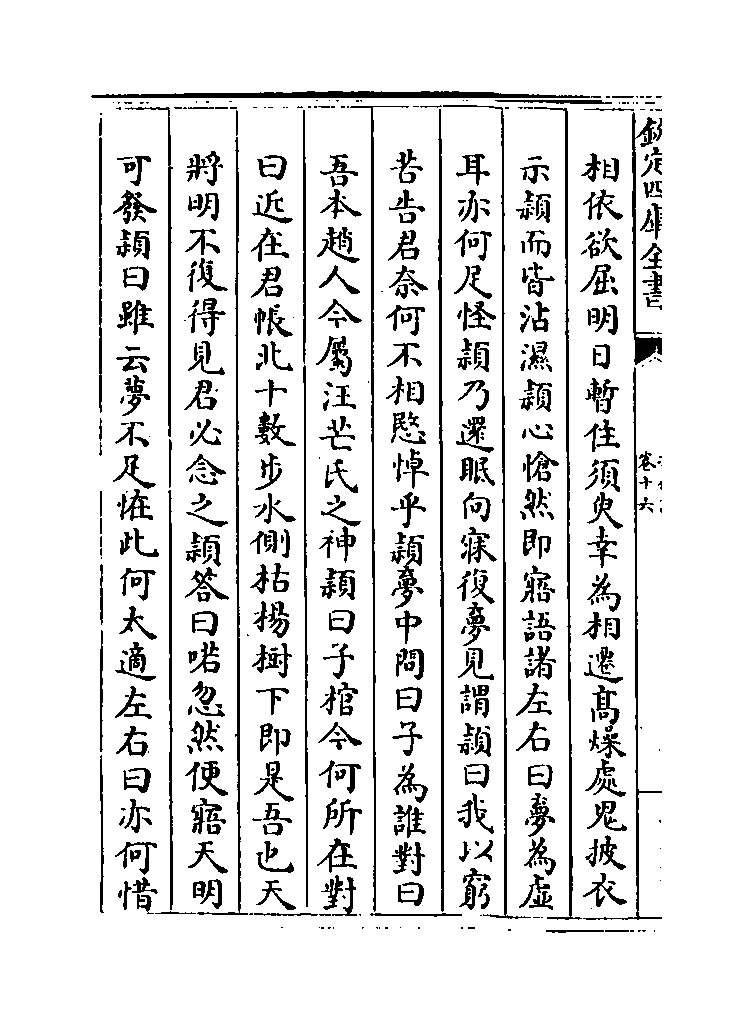 欽定四庫全書
卷十六
相依欲屈明日暫住須臾幸為相遷髙燥處鬼披衣
示頴而皆沾濕頴心愴然即寤語諸左右曰夢為虛
耳亦何足怪頴乃還眠向寐復夢見謂頴曰我以窮
苦告君奈何不相愍悼乎頴夢中問曰子為誰對曰
吾本趙人今屬汪芒氏之神頴曰子棺今何所在對
曰近在君帳北十數步水側枯楊樹下即是吾也天
將明不復得見君必念之頴答曰喏忽然便寤天明
可發頴曰雖云夢不足怪此何太適左右曰亦何惜